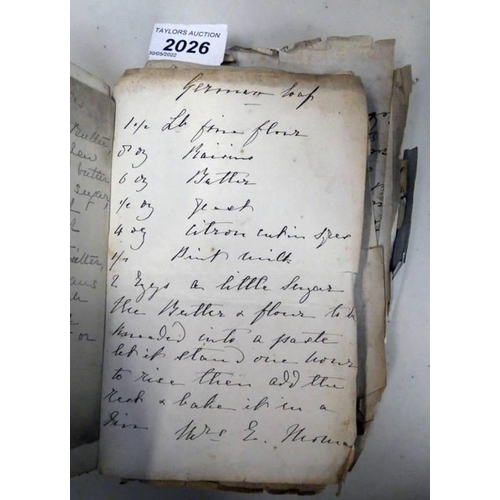 TAYLORS AUCTION
2026
30/05/2022
German Loaf
1 1/2 Lb fine flour
8 oz Raisins
6 oz Butter
1/2 oz yeast
4 oz citron cut in
1/2 Pint milk
2 Eggs a little sugar
The Butter & flour to be
kneaded into a paste
let it stand one hour
to rise then add the
rest & bake it in a
tin Mrs E. Thomas
Butter,
butter
sugar,
or